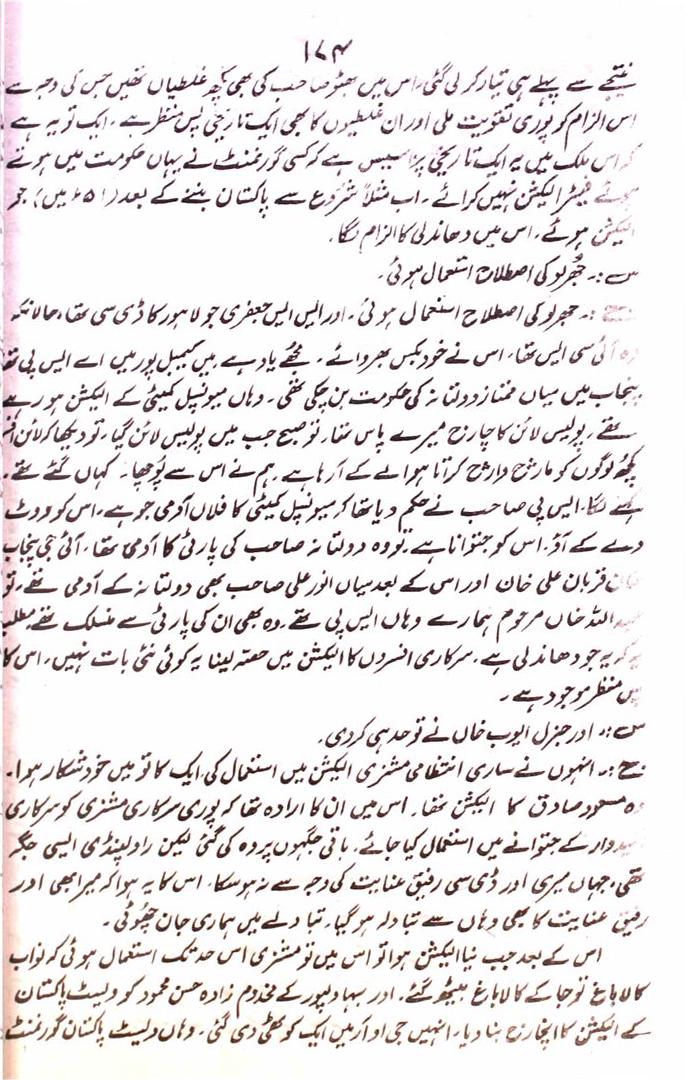 ۱۷۴
نتیجے سے پہلے ہی تیار کر لی گئی، اس میں بھٹو صاحب کی بھی کچھ غلطیاں تھیں جس کی وجہ سے
اس الزام کو پوری تقویت ملی اور ان غلطیوں کا بھی ایک تاریخی پس منظر ہے۔ ایک تو یہ ہے
کہ اس ملک میں یہ ایک تاریخی پراسیس ہے کہ کسی گورنمنٹ نے یہاں حکومت میں ہوتے
ہوئے فیئر الیکشن نہیں کرائے۔ اب مثلاً شروع سے پاکستان بننے کے بعد (۵۱ء میں) جو
الیکشن ہوئے، اس میں دھاندلی کا الزام لگا۔
س:۔ جھرلو کی اصطلاح استعمال ہوئی۔
ج:۔ جھرلو کی اصطلاح استعمال ہوئی۔ اور ایس ایس جعفری جو لاہور کا ڈی سی تھا، حالانکہ
وہ آئی سی ایس تھا، اس نے خود بکس بھروائے۔ مجھے یاد ہے میں کیمبل پور میں اے ایس پی تھا
پنجاب میں میاں ممتاز دولتانہ کی حکومت بن چکی تھی۔ وہاں میونسپل کمیٹی کے الیکشن ہو رہے
تھے۔ پولیس لائن کا چارج میرے پاس تھا۔ تو صبح جب میں پولیس لائن گیا، تو دیکھا کہ لائن افسر
کچھ لوگوں کو مارچ وارچ کراتا ہوا لے کے آ رہا ہے۔ ہم نے اس سے پوچھا۔ کہاں گئے تھے۔
کہنے لگا، ایس پی صاحب نے حکم دیا تھا کہ میونسپل کمیٹی کا فلاں آدمی جو ہے، اس کو ووٹ
دے کے آؤ۔ اس کو جتوانا ہے۔ تو وہ دولتانہ صاحب کی پارٹی کا آدمی تھا۔ آئی جی پنجاب
خان قربان علی خان اور اس کے بعد میاں انور علی صاحب بھی دولتانہ کے آدمی تھے۔ تو
اللہ خاں مرحوم ہمارے وہاں ایس پی تھے۔ وہ بھی ان کی پارٹی سے منسلک تھے۔ مطلب
یہ کہ یہ جو دھاندلی ہے، سرکاری افسروں کا الیکشن میں حصہ لینا یہ کوئی نئی بات نہیں، اس کا
پس منظر موجود ہے۔
س:۔ اور جنرل ایوب خاں نے تو حد ہی کر دی۔
ج:۔ انہوں نے ساری انتظامی مشنری الیکشن میں استعمال کی، ایک کا تو میں خود شکار ہوا۔
وہ مسعود صادق کا الیکشن تھا۔ اس میں ان کا ارادہ تھا کہ پوری سرکاری مشنری کو سرکاری
امیدوار کے جتوانے میں استعمال کیا جائے۔ باقی جگہوں پر وہ کی گئی لیکن راولپنڈی ایسی جگہ
تھی، جہاں میری اور ڈی سی رفیق عنایت کی وجہ سے نہ ہو سکا۔ اس کا یہ ہوا کہ میرا بھی اور
رفیق عنایت کا بھی وہاں سے تبادلہ ہو گیا۔ تبادلے میں ہماری جان چھوٹی۔
اس کے بعد جب نیا الیکشن ہوا تو اس میں تو مشنری اس حد تک استعمال ہوئی کہ نواب
کالا باغ تو جا کے کالا باغ بیٹھ گئے۔ اور بہاولپور کے مخدوم زادہ حسن محمود کو ویسٹ پاکستان
کے الیکشن کا انچارج بنا دیا۔ انہیں جی او آر میں ایک کوٹھی دی گئی۔ وہاں ویسٹ پاکستان گورنمنٹ